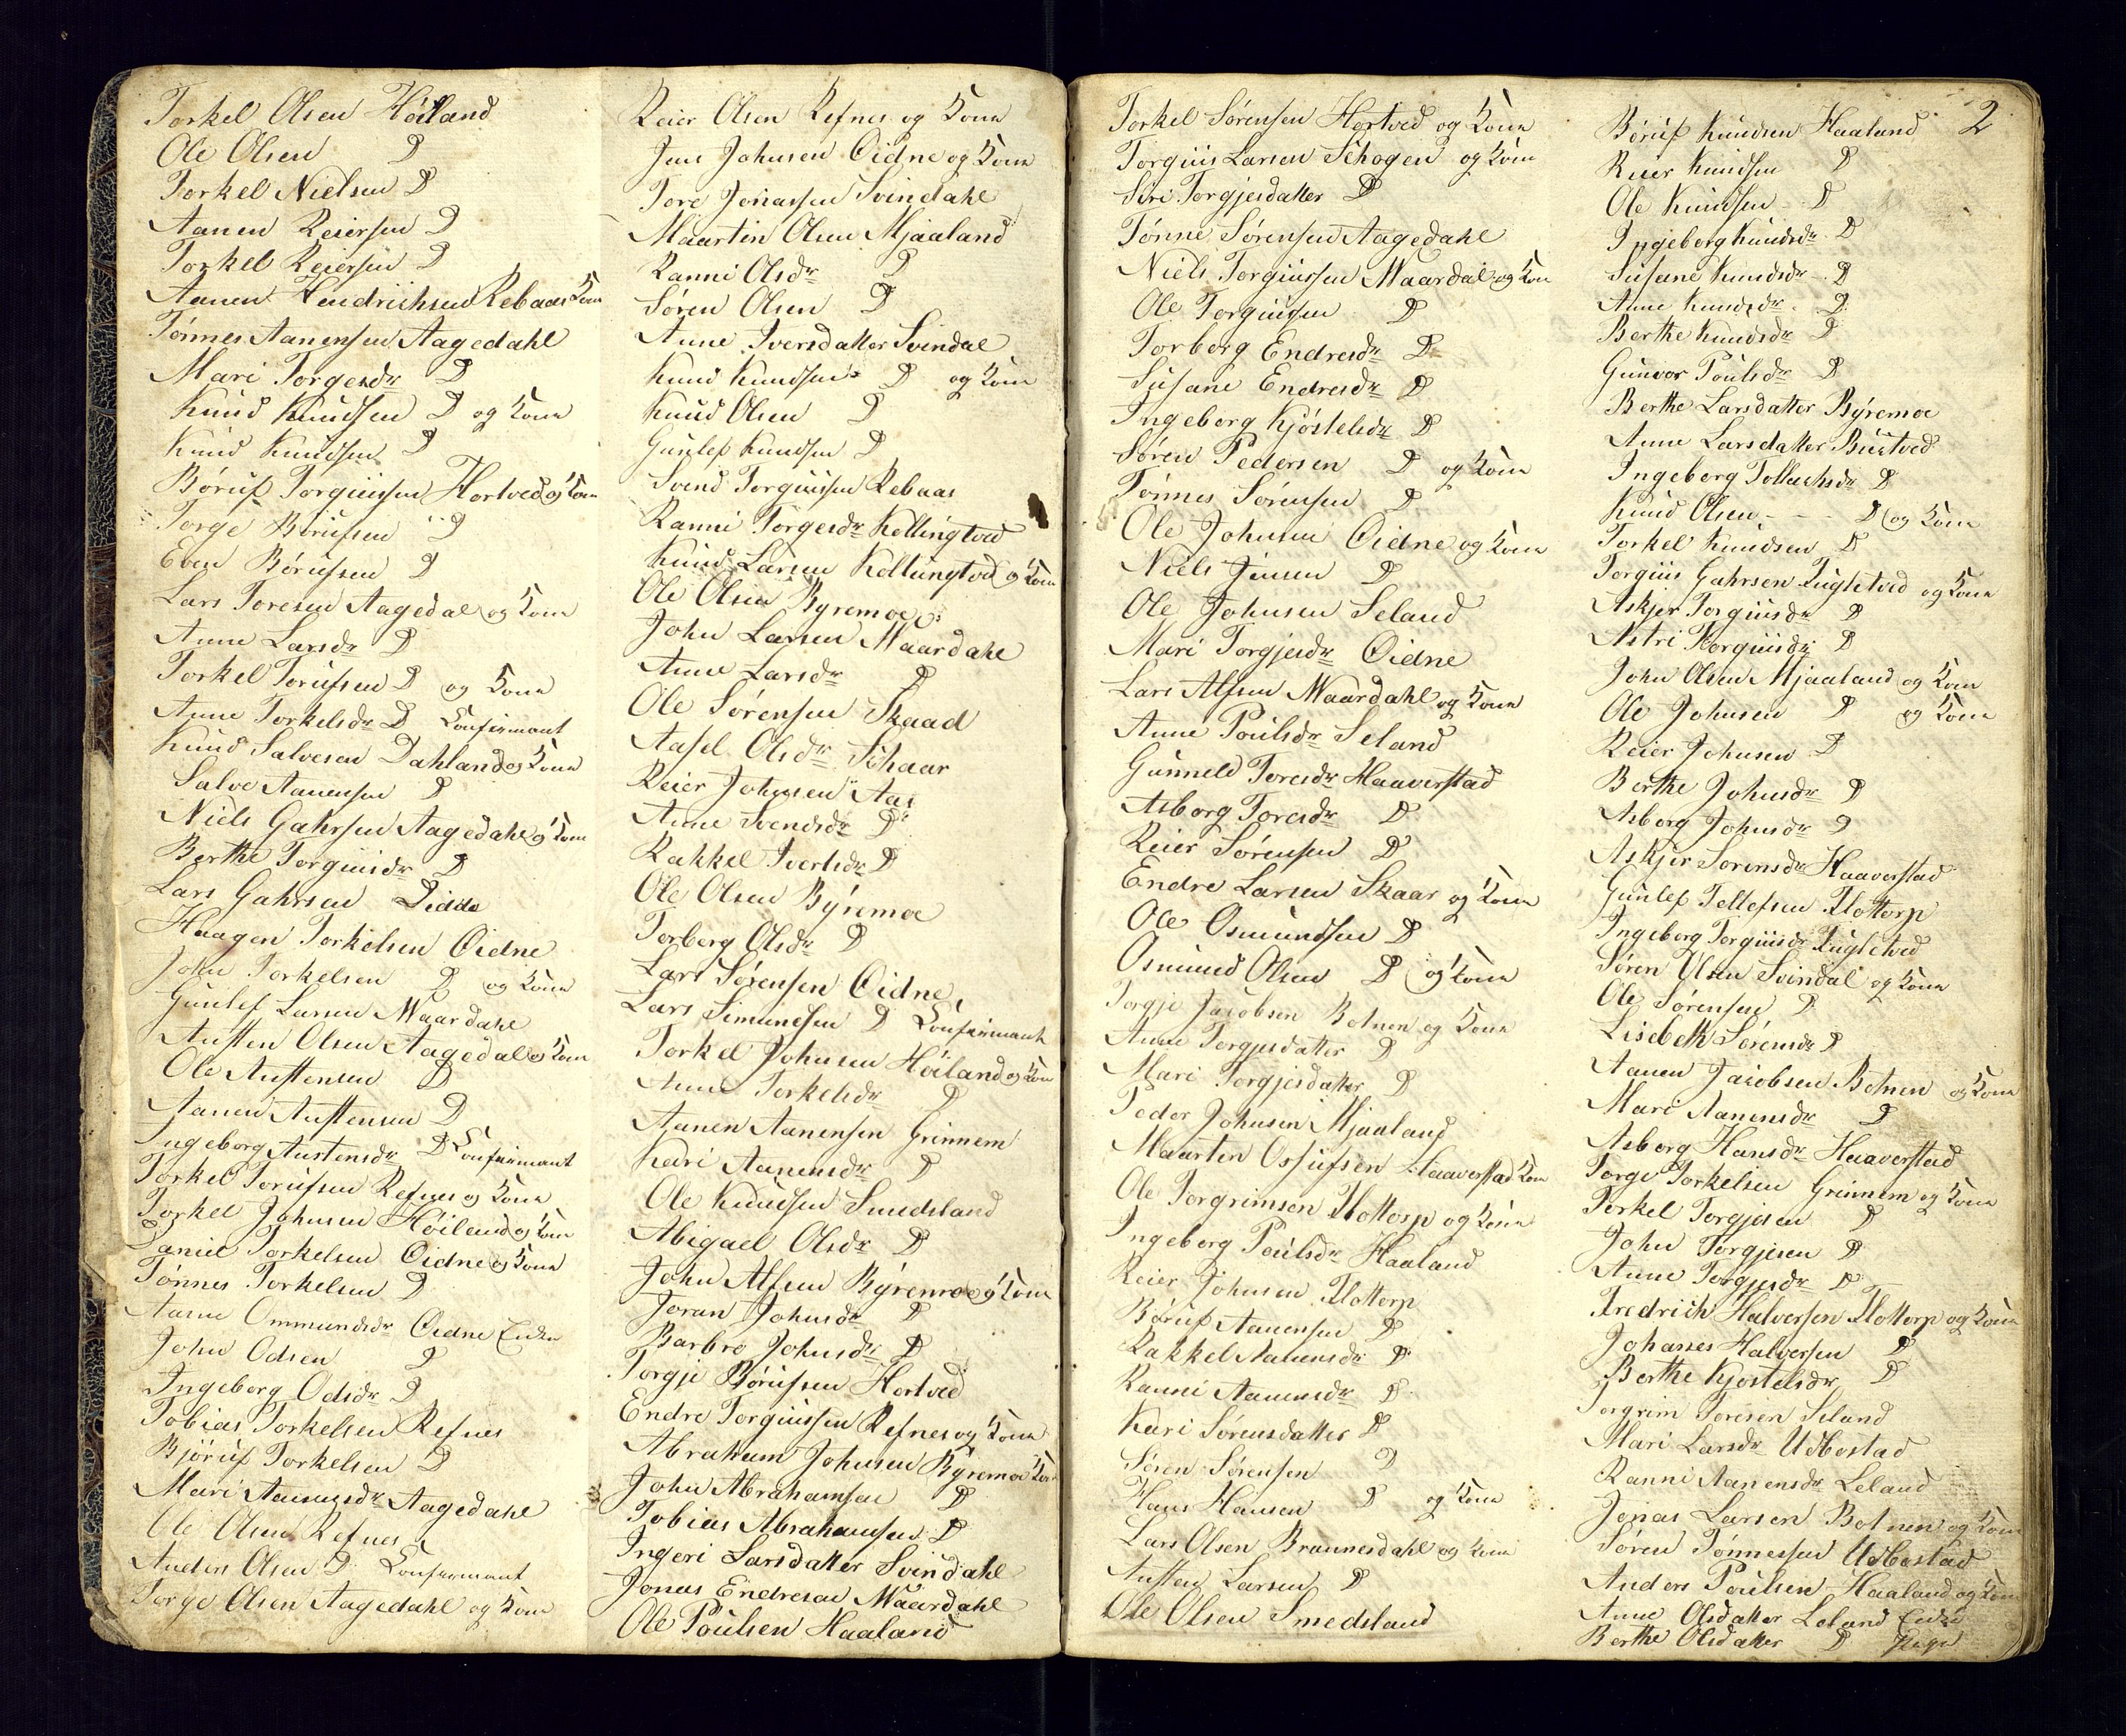 Torkel Olsen Höiland
Ole Olsen D
Torkel Nielsen D
Aanen Reiersen D
Torkel Reiersen D
Aanen Hendrichsen Rebaas Kone
Tönnes Aanensen Aagedahl
Mari Torgesdr D
Knud Knudsen D og Kone
Knud Knudsen D
Börúf Torgiussen Hortved og Kone
Torge Börufsen D
Even Börufsen D
Lars Toresen Aagedal og Kone
Anne Larsdr D
Torkel Torufsen D og Kone
Anne Torkelsdr D Confirmant
Knud Salvesen Dahland og Kone
Salve Aanensen D
Niels Gahrsen Aagedahl og Kone
Berthe Torguisdr D
Lars Gahrsen Didde
Haagen Torkelsen Öidne
John Torkelsen D og Kone
Gunlef Larsen Maardahl
Austen Olsen Aagedal og Kone
Ole Austensen D
Aanen Austensen D
Ingeborg Austensdr D Confirmant
Torkel Torufsen Refnes og Kone
Torkel Johnsen Höiland og Kone
Daniel Torkelsen Öidne og Kone
Tönnes Torkelsen D
Aasne Ommundsdr Öidne Enke
John Odsen D
Ingeborg Odsdr D
Tobias Torkelsen Refnes
Björuf Torkelsen D
Mari Aanensdr Aagedahl
Ole Olsen Refnes
Anders Olsen D Confirmant
Torge Olsen Aagedahl og Kone
Reier Olsen Refnes og Kone
Jens Johnsen Öidne og Kone
Tore Jonassen Svindahl
Maartin Olsen Mjaaland
Ranni Olsdr D
Sören Olsen D
Anne Iversdatter Svindal
Knud Knudsen D og Kone
Knud Olsen D
Gunlef Knudsen D
Svend Torguissen Rebaas
Ranni Torgesdr Kellingtved
Knud Larsen Kellingtved og Kone
Ole Olsen Byremoe
John Larsen Maardahl
Anne Larsdr D
Ole Sörensen Skaad
Aasel Olsdr Schaar
Reier Johnsen Aas
Anne Svendsdr D
Rakkel Ivertsdr D
Ole Olsen Býremoe
Torberg Olsdr D
Lars Sörensen Öidne
Lars Simundsen D Confirmant
Torkel Johnsen Höiland og Kone
Anne Torkelsdr D
Aanen Aanensen Grinnem
Kari Aanensdr D
Ole Knudsen Smedsland
Abigael Olsdr D
John Alfsen Býremoe og Kone
Joran Johnsdr D
Barbro Johnsdr D
Torgje Börufsen Hortved
Endre Torguissen Refnes og Kone
Abraham Johnsen Býremoe Kone
John Abrahamsen D
Tobias Abrahamsen D
Ingeri Larsdatter Svindahl
Jonas Endresen Maardahl
Ole Poulsen Haaland
Torkel Sörensen Hortved og Kone
Torguis Larsen Schogen og Kone
Siri Torgjesdatter D
Tönne Sörensen Aagedahl
Niels Torguissen Maardal og Kone
Ole Torguissen D
Torborg Endresdr D
Susane Endresdr D
Ingeborg Kjöstelsdr D
Sören Pedersen D og Kone
Tönnes Sörensen D
Ole Johnsen Öidne og Kone
Niels Jensen D
Ole Johnsen Seland
Mari Torgjesdr Öidne
Lars Alfsen Maardahl og Kone
Anne Poulsdr Seland
Gunneld Toresdr Haaverstad
Asborg Toresdr D
Reier Sörensen D
Endre Larsen Skaar og Kone
Ole Osmundsen D
Osmund Olsen D og Kone
Torgje Jacobsen Botnen og Kone
Anne Torgjesdatter D
Mari Torgjesdatter D
Peder Johnsen Mjaaland
Maarten Osjufsen Haaverstad Kone
Ole Torgrimsen Flottorp og Kone
Ingeborg Poulsdr Haaland
Reier Johnsen Flottorp
Böruf Aanensen D
Rakkel Aanensdr D
Ranni Aanensdr D
Kari Sörensdatter D
Sören Sörensen D
Hans Hansen D og Kone
Lars Olsen Brannesdahl og Kone
Austen Larsen D
Ole Olsen Smedsland
2
Böruf Knudsen Haaland
Reier Knudsen D
Ole Knudsen D
Ingeborg Knudsdr D
Susane Knudsdr D
Anne Knudsdr D
Berthe Knudsdr D
Gunvor Poulsdr D
Berthe Larsdatter Býremoe
Anne Larsdatter Bustved
Ingeborg Tollachsdr D
Knud Olsen - - - D og Kone
Torkel Knudsen D
Torguis Gahrsen Fugletved og Kone
Askjer Torguisdr D
Astri Torguisdr D
John Olsen Mjaaland og Kone
Ole Johnsen D og Kone
Reier Johnsen D
Berthe Johnsdr D
Asborg Johnsdr D
Askjer Sorensdr Haaverstad
Gunlef Tellefsen Flottorp
Ingeborg Torguisdr Fugletved
Sören Olsen Svindal og Kone
Ole Sörensen D
Lisebeth Sörensdr D
Aanen Jacobsen Botnen og Kone
Mari Aanensdr D
Asborg Hansdr Haaverstad
Torge Torkelsen Grinnem og Kone
Torkel Torgjesen D
John Torgjesen D
Anne Torgjesdr D
Fredrich Halversen Flottorp og Kone
Johannes Halversen D
Berthe Kjostelsdr D
Torgrim Toresen Seland
Mari Larsdr Udbostad
Ranni Aanensdr Leland
Jonas Larsen Botnen og Kone
Sören Tönnessen Udbostad
Anders Poulsen Haaland og Kone
Anne Olsdatter Leland Enke
Berthe Olsdatter D Pige